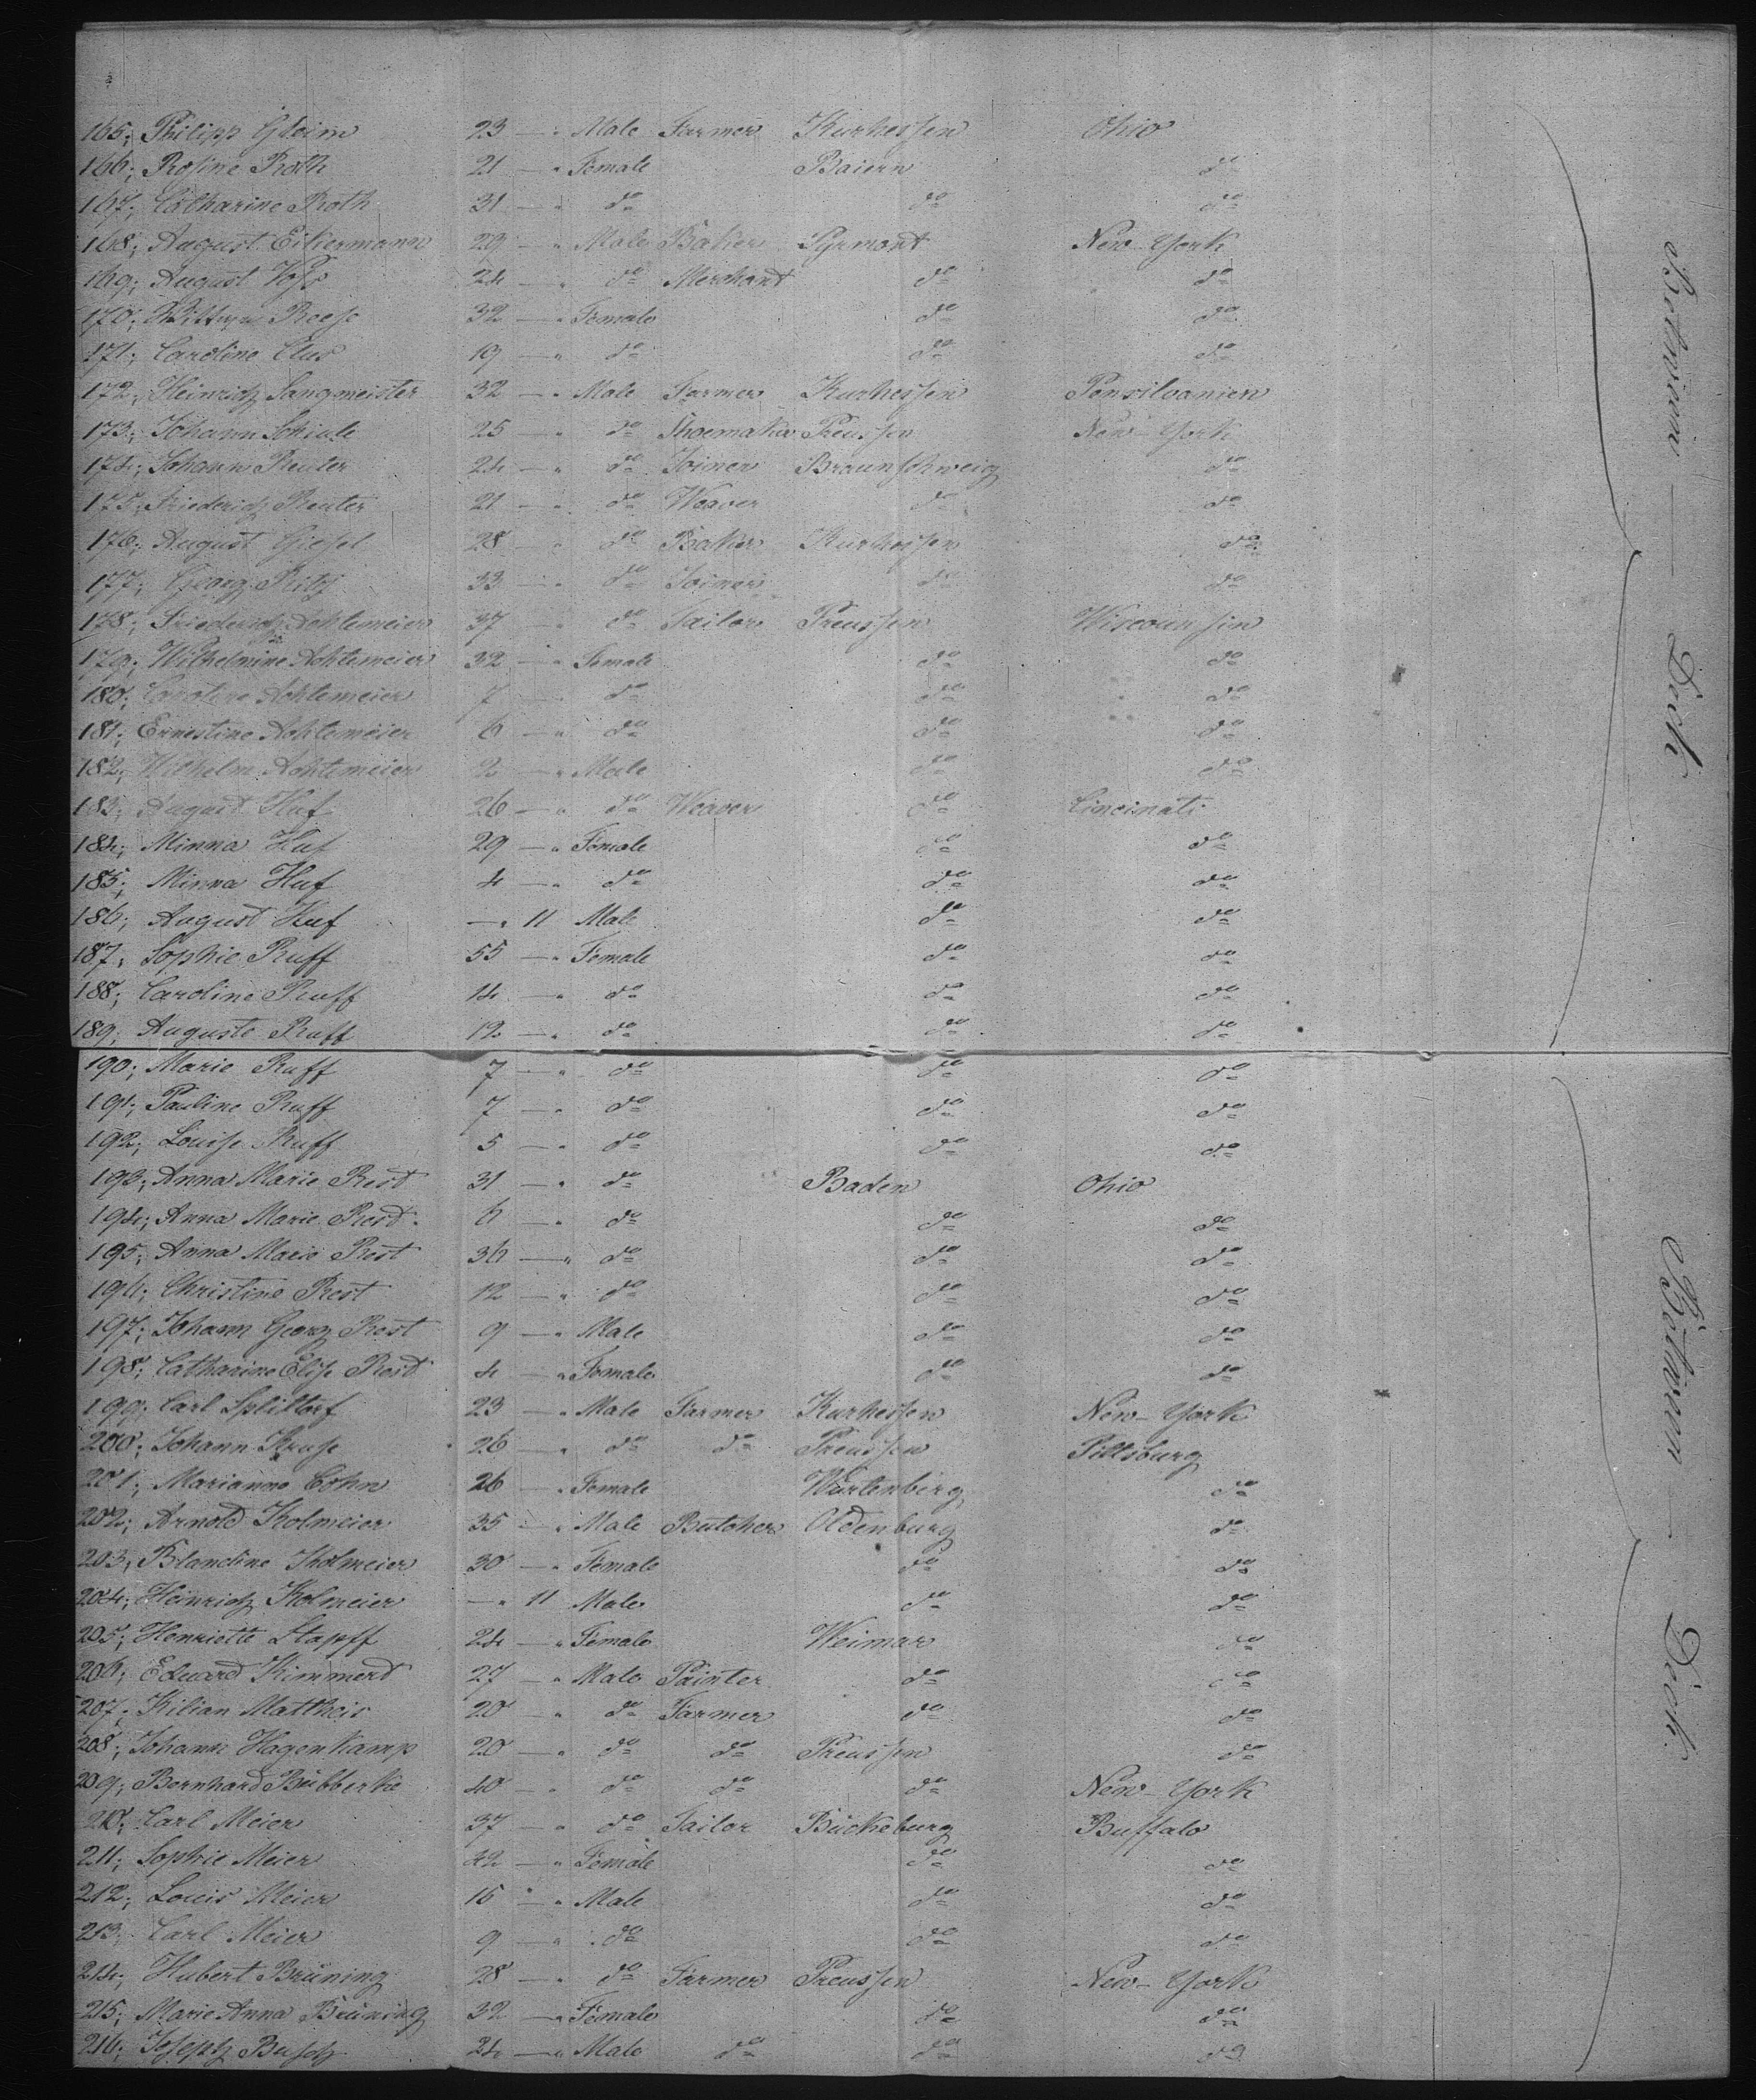 165; Philipp Gleim 23 — " Male Farmer Kurhessen Ohio
166; Rosine Roth 21 — " Female Baiern do
167; Catharine Roth 31 — " do do do
168; August Eikermann 29 — " Male Baker Pyrmont New-York
169; August 24 — " do Merchant do do
170; Reese 32 — " Female do do
171; Caroline Clus 19 — " do do do
172; Heinrich Sangmeister 32 — " Male Farmer Kurhessen Pensilvanien
173; Johann 25 — " do Shoemaker Preussen New-York
174; Johann Reuter 24 — " do Joiner Braunschweig do
175; Friederich Reuter 21 — " do Weaver do do
176; August Giesel 28 — " do Baker Kurhessen do
177; Georg Ritz 33 — " do Joiner do do
178; Friederich Achtemeier 37 — " do Tailor Preussen Wiscounsin
179; Wilhelmine Achtemeier 32 — " Female do do
180; Caroline Achtemeier 7 — " do do do
181; Ernestine Achtemeier 6 — " do do do
182; Wilhelm Achtemeier 2 — " Male do do
183; August Huf 26 — " do Weaver do Cincinati
184; Minna Huf 29 — " Female do do
185; Minna Huf 4 — " do do do
186; August Huf — " 11 Male do do
187; Sophie Ruff 55 — " Female do do
188; Caroline Ruff 14 — " do do do
189; Auguste Ruff 12 — " do do do
Between — Deck
190; Marie Ruff 7 — " do do do
191; Pauline Ruff 7 — " do do do
192; Louise Ruff 5 — " do do do
193; Anna Marie Rest 31 — " do Baden Ohio
194; Anna Marie Rest 6 — " do do do
195; Anna Marie Rest 36 — " do do do
196; Christine Rest 12 — " do do do
197; Johann Georg Rest 9 — " Male do do
198; Catharine Elise Rest 4 — " Female do do
199; Carl Splittorf 23 — " Male Farmer Kurhessen New-York
200; Johann Kruse 26 — " do do Preussen Pittsburg
201; Marianne Cohn 26 — " Female Würtenberg do
202; Arnold Kolmeier 35 — " Male Butcher Oldenburg do
203; Blandine Kolmeier 30 — " Female do do
204; Heinrich Kolmeier — " 11 Male do do
205; Henriette Stapff 24 — " Female Weimar do
206; Eduard Kimmerd 27 — " Male Painter do do
207; Kilian Mattheis 20 — " do Farmer do do
208; Johann Hagenkamp 20 — " do do Preussen do
209; Bernhard Bübberke 40 — " do do do New-York
210; Carl Meier 37 — " do Tailor Bückeburg Buffalo
211; Sophie Meier 42 — " Female do do
212; Louis Meier 15 " " Male do do
213; Carl Meier 9 — " do do do
214; Hubert Brüning 28 — " do Farmer Preussen New-York
215; Marie Anna Brüning 32 — " Female do do
216; Joseph Busch 24 — " Male do do do
Between — Deck